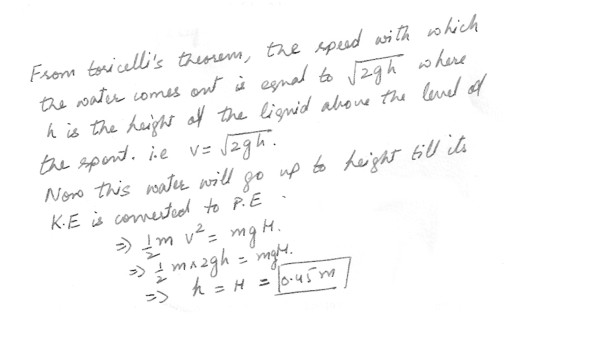 From toricelli's theorem, the speed with which
the water comes out is equal to √2gh where
h is the height of the liquid above the level of
the spout. i.e v = √2gh.
Now this water will go up to height till its
K.E is converted to P.E.
⇒ 1/2 m v² = mgH.
⇒ 1/2 m × 2gh = mgH.
⇒ h = H = 0.45m